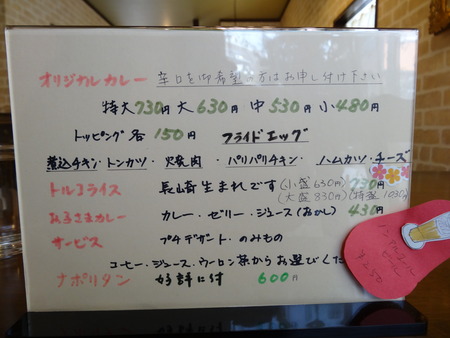 オリジナルカレー 辛口を御希望の方はお申し付け下さい
特大730円 大630円 中530円 小480円
トッピング各150円 フライドエッグ
煮込チキン・トンカツ・焼肉・パリパリチキン・ハムカツ・チーズ
トルコライス 長崎生まれです(小盛630円) 730円
(大盛830円) 特盛1030円
おこさまカレー カレー・ゼリー・ジュース(おかし) 430円
サービス プチデザート・のみもの
コーヒー・ジュース・ウーロン茶からお選びくだ
ナポリタン 好評に付 600円